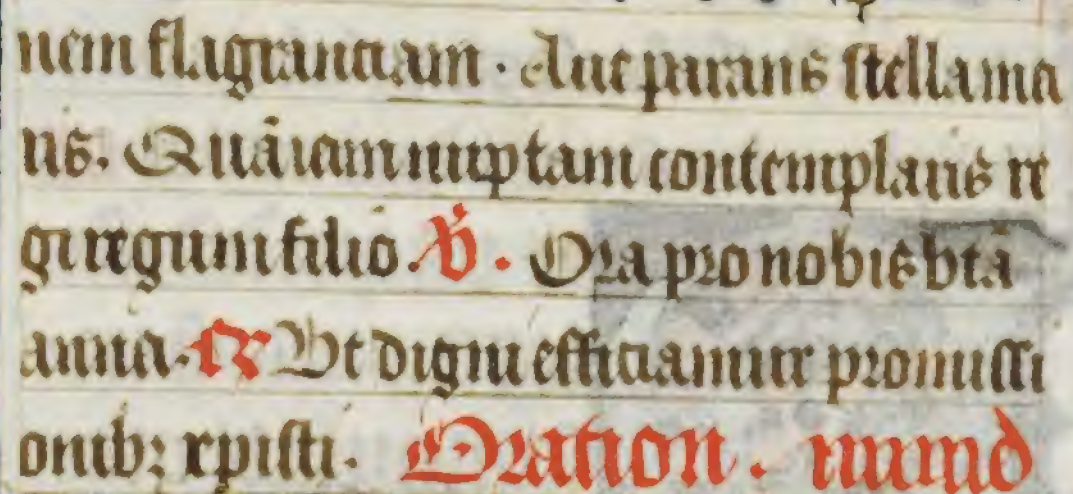 nem flagranciam. Aue parans stellama
ris. Quā iam nuptam contemplaris re
gi regum filio. ℣. Ora pro nobis btā
anna. ℟ Vt digni efficiamur promissi
onib; xpisti. Oration. mimd